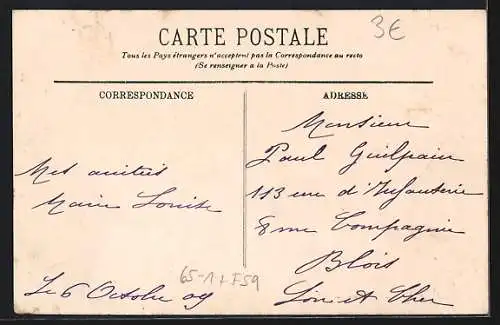 3€
CARTE POSTALE
Tous les Pays étrangers n'acceptent pas la Correspondance au recto
(Se renseigner à la Poste)
CORRESPONDANCE
ADRESSE
Mes amitiés
Marie Louise
Le 6 Octobre 09
65-1
F59
Monsieur
Paul Guilpain
113 eme d'Infanterie
8 me Compagnie
Blois
Loir et Cher